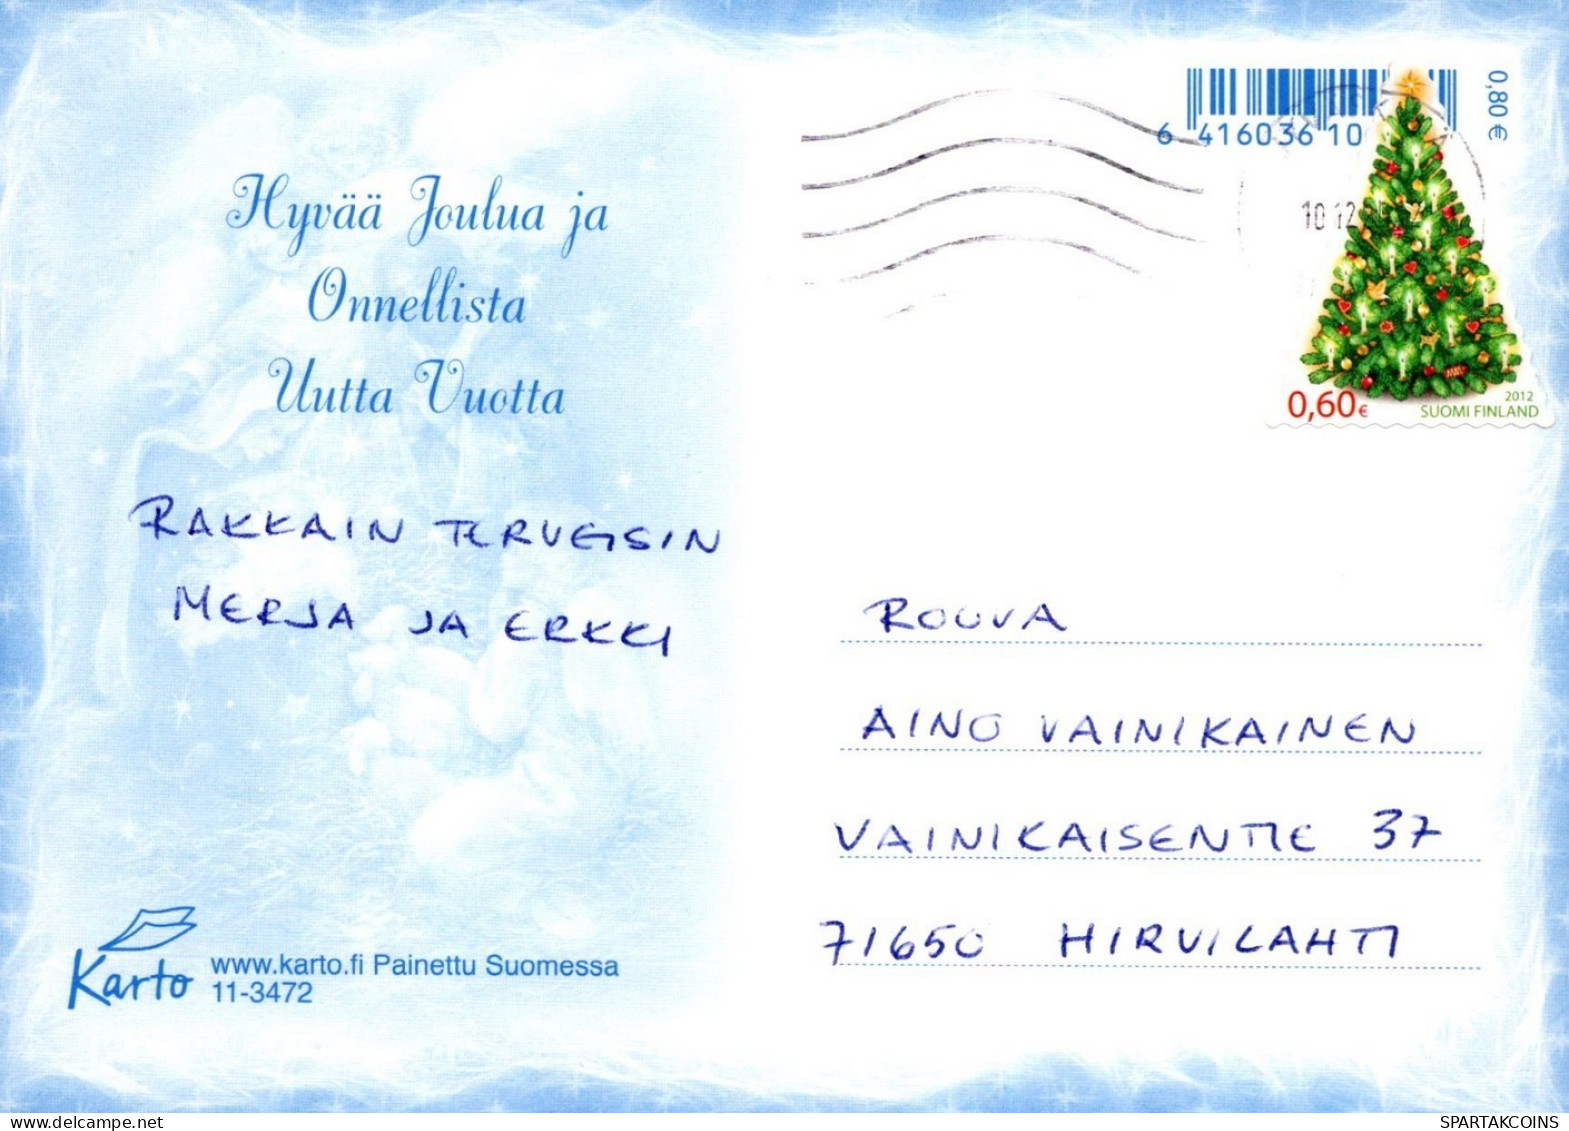 Hyvää Joulua ja
Onnellista
Uutta Vuotta
RAKKAIN TERVEISIN
MERJA JA ERKKI
Karto
www.karto.fi Painettu Suomessa
11-3472
0,80 €
6 416036 10
10 12
0,60€
2012
SUOMI FINLAND
ROUVA
AINO VAINIKAINEN
VAINIKAISENTIE 37
71650 HIRVILAHTI
SPARTAKCOINS